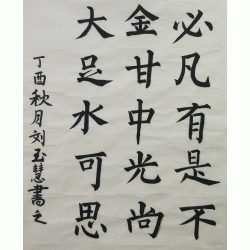 必凡有是不
金甘中光尚
大足水可思
丁酉秋月刘玉慧書之